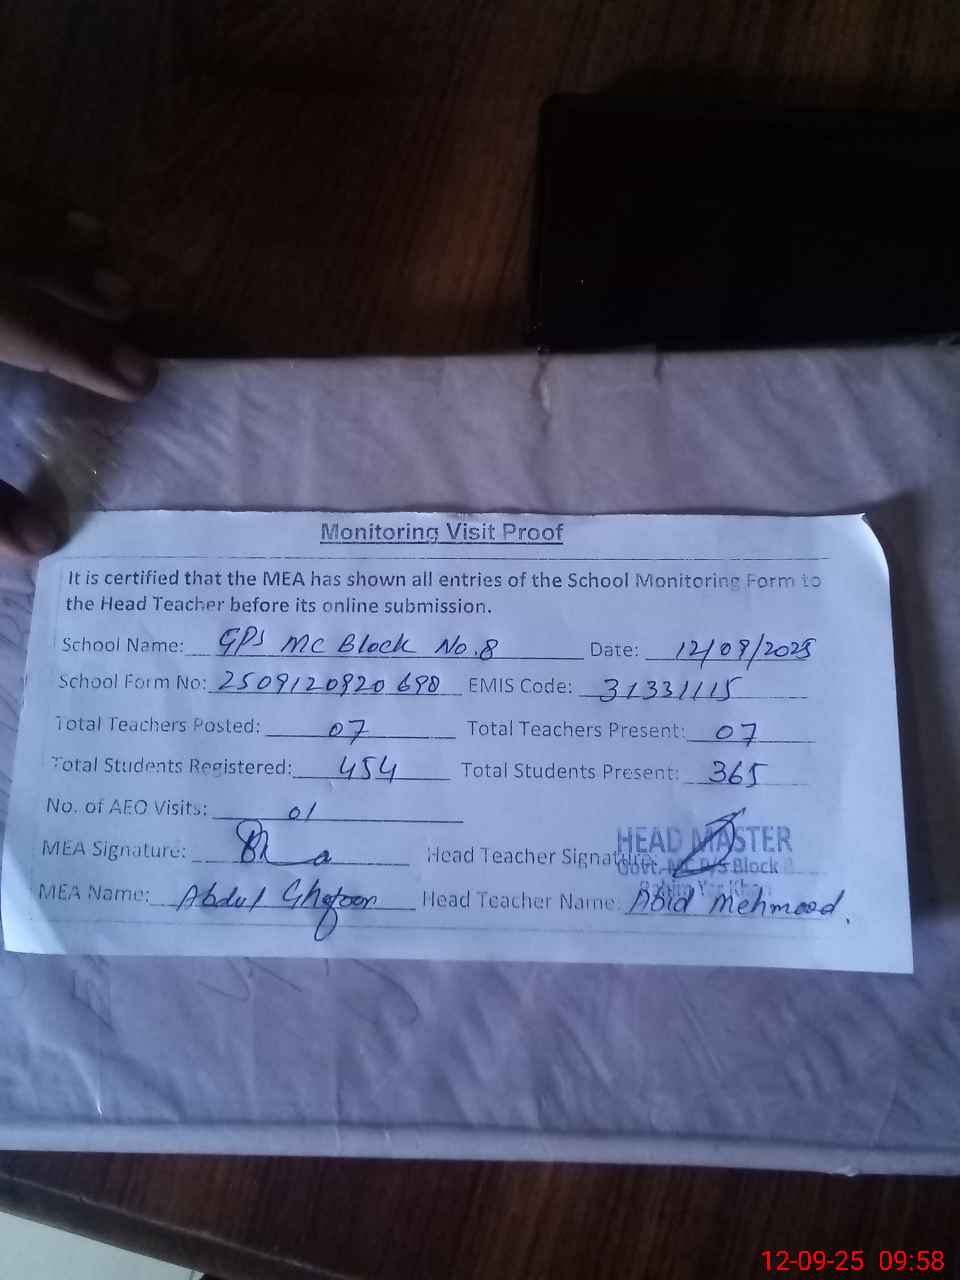 Monitoring Visit Proof
It is certified that the MEA has shown all entries of the School Monitoring Form to
the Head Teacher before its online submission.
School Name: GPS MC Block No.8 Date: 12/09/2025
School Form No: 2509120920690 EMIS Code: 31331115
Total Teachers Posted: 07 Total Teachers Present: 07
Total Students Registered: 454 Total Students Present: 365
No. of AEO Visits: 01
HEAD MASTER
MEA Signature: Head Teacher Signature:
Govt. MC P/S Block 8
Rahim Yar Khan
MEA Name: Abdul Ghafoor Head Teacher Name: Abid Mehmood.
12-09-25 09:58